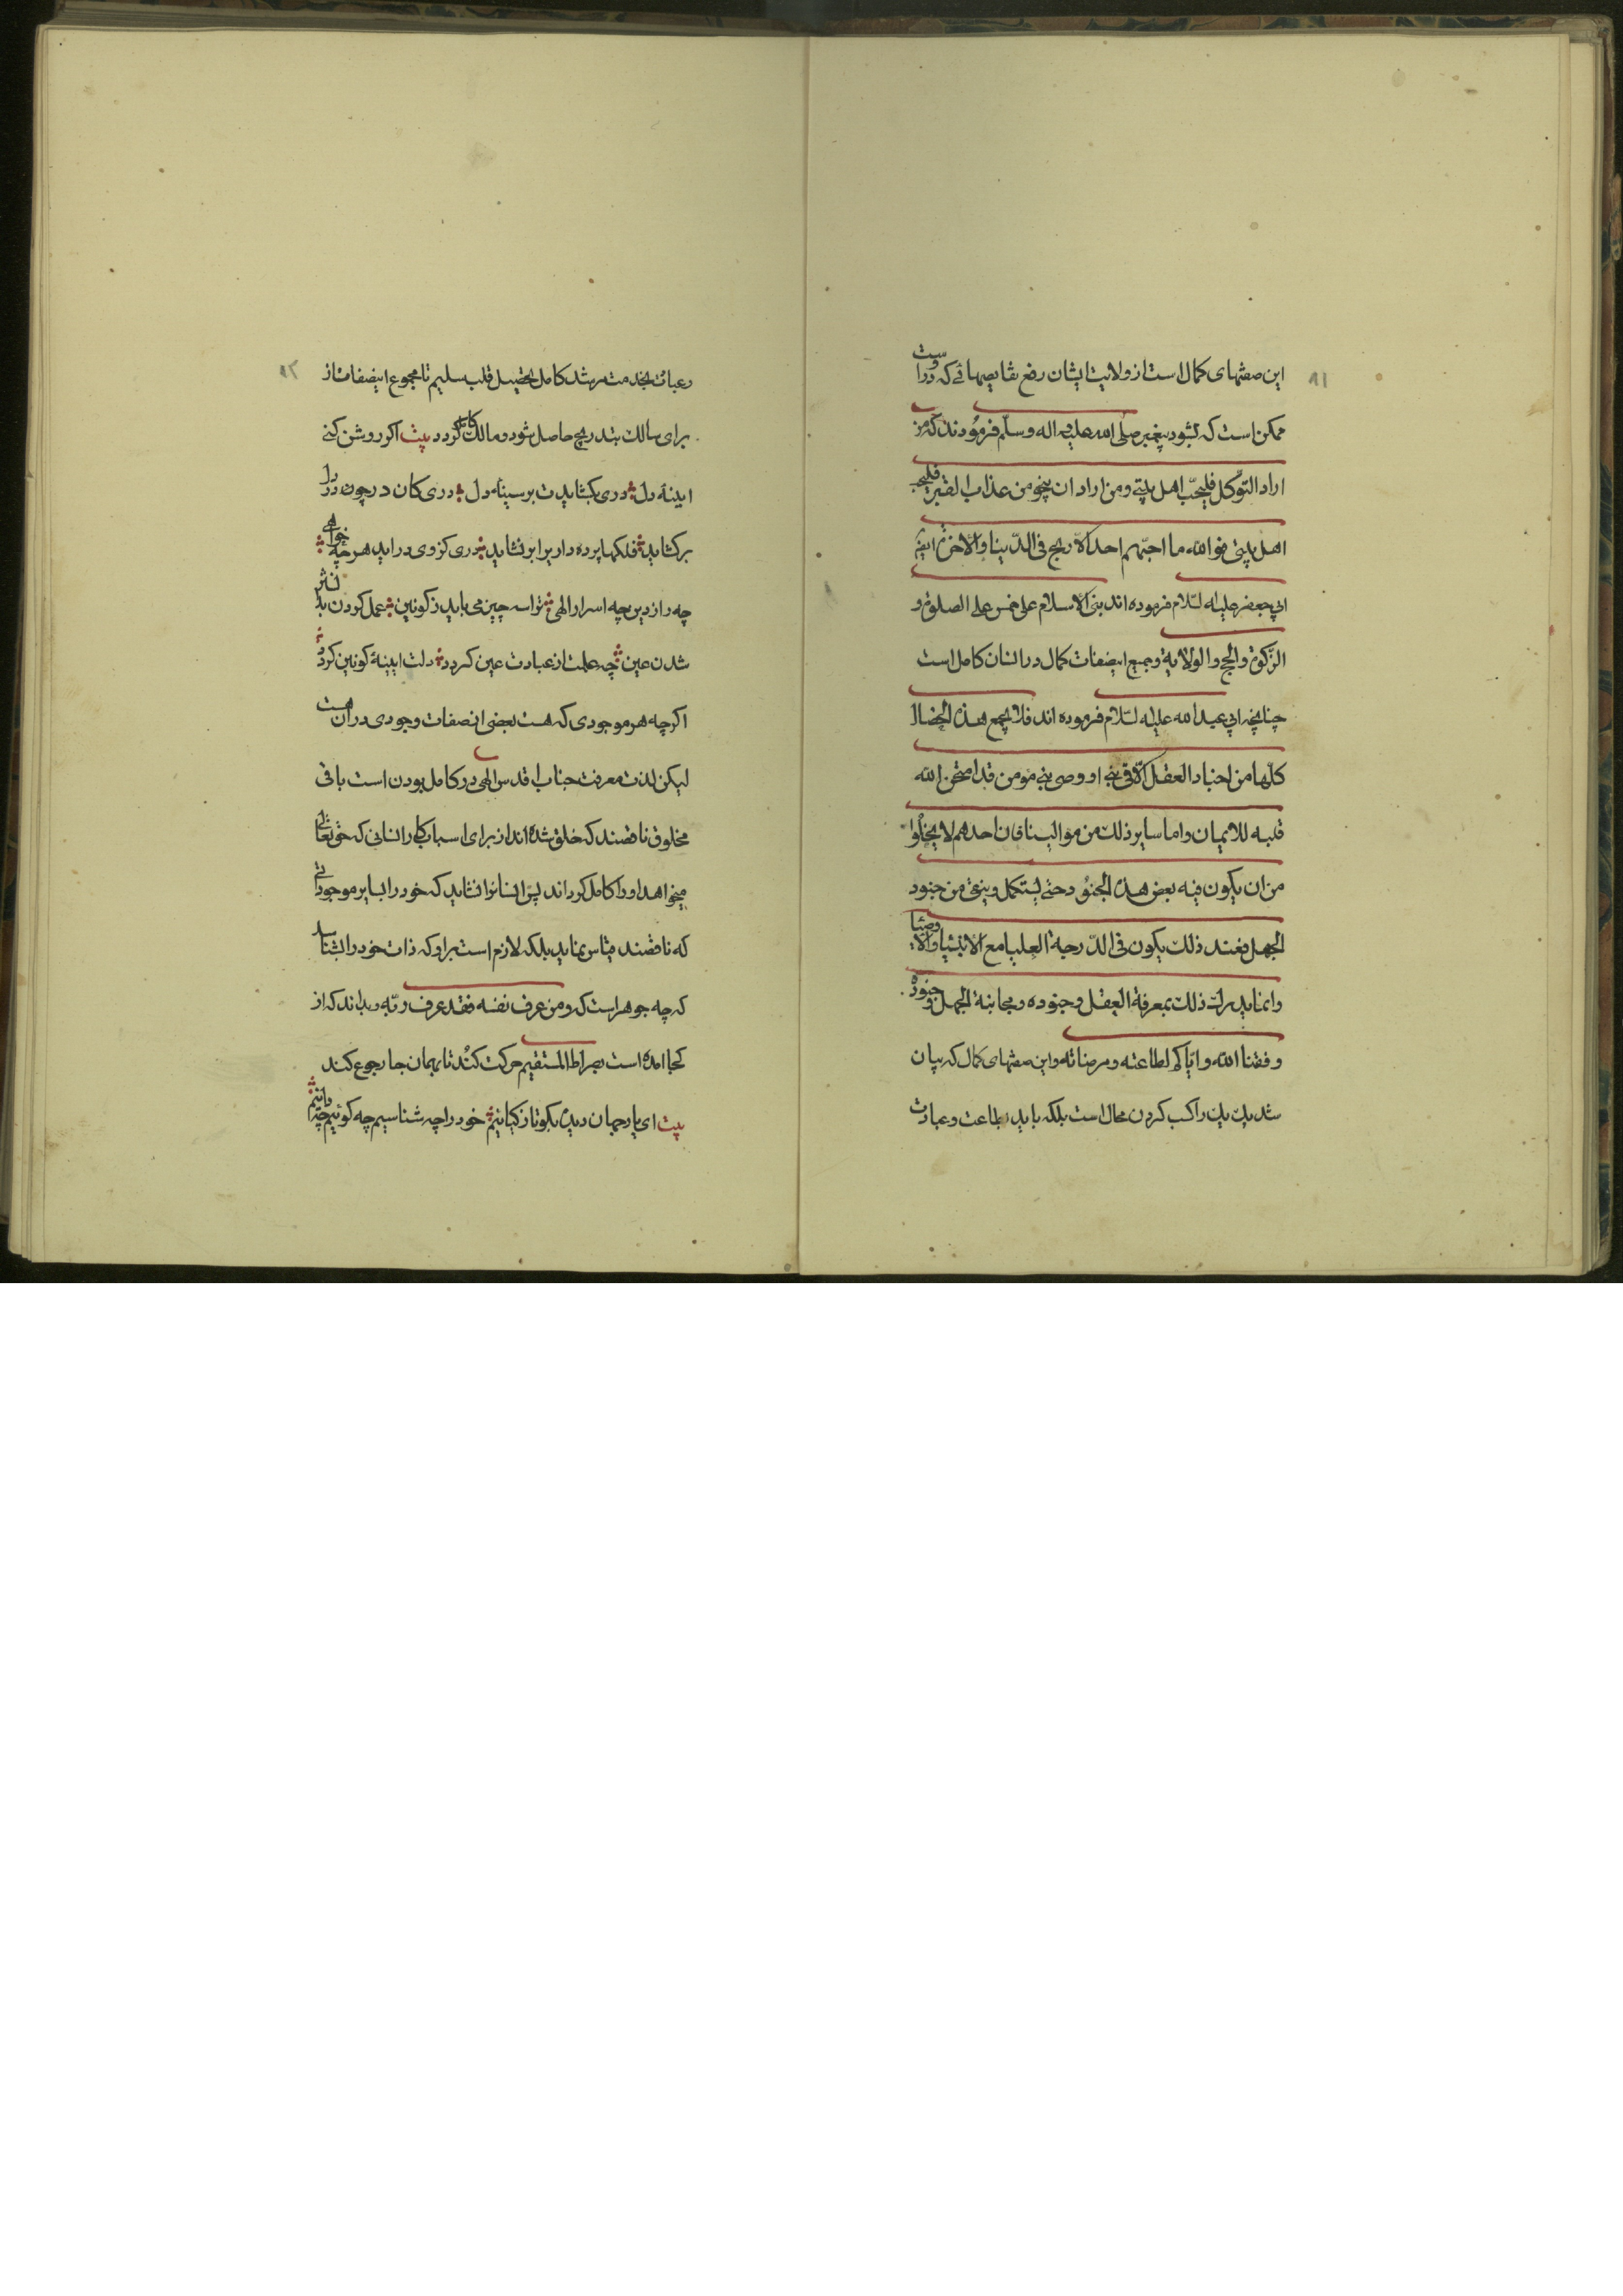 ۹۱
این صفتهای کمال است از ولایت ایشان رفع نقایصهائی که در اوست
ممکن است که بشود پیغمبر صلی الله علیه اله وسلم فرمودند که من
اراد التوکل فلیحبّ اهل بیتی ومن اراد ان ینجو من عذاب القبر فلیحب
اهل بیتی فو الله ما احبّهم احد الا ربح فی الدّنیا والاخرة
ابی جعفر علیه السّلام فرموده اند بنی الاسلام علی خمس علی الصلوة و
الزّکوة والحج والولایة وجمیع اینصفات کمال در انسان کامل است
چنانچه ابی عبد الله علیه السّلام فرموده اند فلا یجمع هذه الخصال
کلّها من اجناد العقل الّا فی نبی او وصی نبی مومن قد امتحن الله
قلبه للایمان واما سایر ذلک من موالینا فان احدهم لا یخلوا
من ان یکون فیه بعض هذه الجنود حتی یستکمل وینقی من جنود
الجهل فعند ذلک یکون فی الدّرجة العلیا مع الانبیا والاوصیا
وانما یدرک ذلک بمعرفة العقل وجنوده ومجانبة الجهل وجنوده
وفقنا الله وایّاکم لطاعته ومرضاته واین صفتهای کمال که بیان
شد یک یک را کسب کردن محال است بلکه باید بطاعت وعبادت
۹۲
رعبات بخدمت مرشد کامل بتحصیل قلب سلیم تا مجموع اینصفات از
برای سالک بتدریج حاصل شود ومالک کامل کردد بیت اکر روشن کنی
ایینۀ دل دری بکشایدت بر سینۀ دل دری کان در چون در دل
برکشاید فلکها پرده داریرا نشاید دری کز وی دراید هرچه خواهی
چه راز دین چه اسرار الهی ترا سه چیز می باید ز کونین عمل کردن
شدن عین چه علمت از عبادت عین کردد دلت ایینۀ کونین کردد نثر
اکرچه هر موجودی که هست بعضی از صفات وجودی در ان هست
لیکن لذت معرفت جناب اقدس الهی در کامل بودن است باقی
مخلوق ناقصند که خلق شده اند از برای اسباب کار انسانی که حق تعالی
میخواهد او را کامل کرداند پس انسانرا نشاید که خود را بسایر موجوداتی
که ناقصند قیاس نماید بلکه لازم است براو که ذات خود را بشناسد
که چه جوهر است که ومن عرف نفسه فقد عرف ربّه وبداند که از
کجا امده است بصراط المستقیم حرکت کند تا بهمان جا رجوع کند
بیت ای یار جهان دیده بکو تا ز کیانیم خود را چه شناسیم چه کوئیم چه دانیم